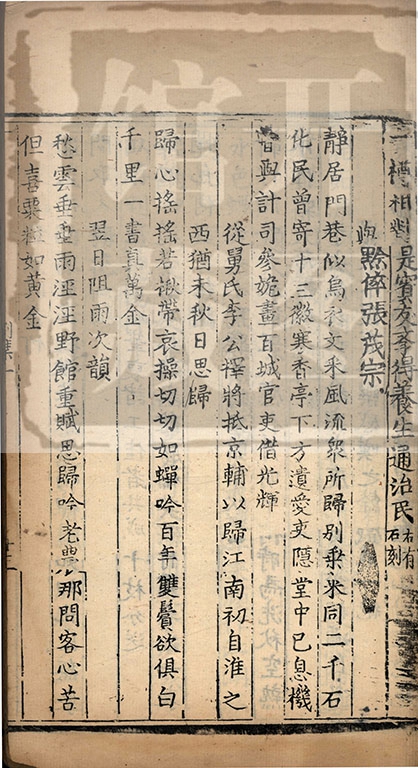 樽相對是賓友斈得養生通治民右有石刻
黔倅張茂宗
靜居門巷似烏衣文采風流衆所歸別乗來同二千石
化民曾寄十三徽寒香亭下方遺愛吏隱堂中已息機
與計司參婉畫百城官吏借光輝
從舅氏李公擇將抵京輔以歸江南初自淮之
西猶未秋日思歸
歸心搖搖若楸帶哀操切切如蟬吟百年雙鬢欲俱白
千里一書真萬金
翌日阻雨次韻
愁雲垂垂雨淫淫野館重賦思歸吟老農那問客心苦
但喜粟粒如黃金